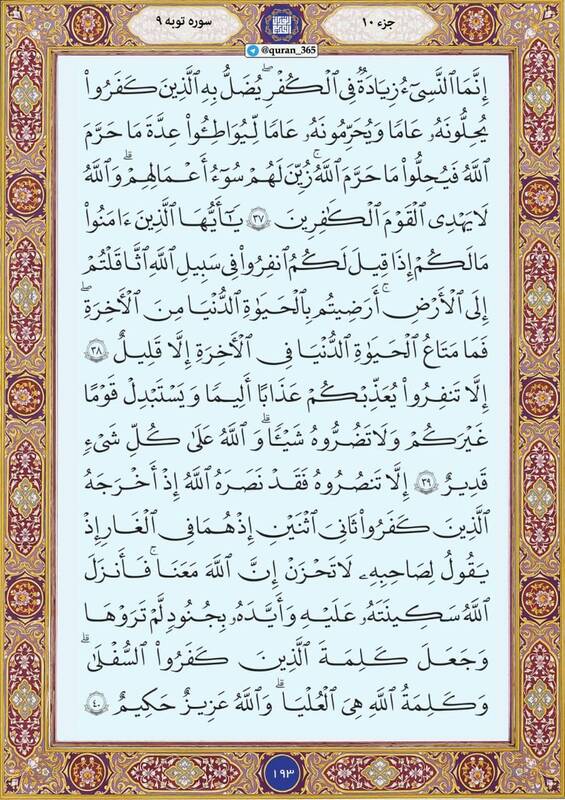 سوره توبه ۹
جزء ۱۰
@quran_365
إِنَّمَا ٱلنَّسِيٓءُ زِيَادَةٌ فِي ٱلۡكُفۡرِۖ يُضَلُّ بِهِ ٱلَّذِينَ كَفَرُواْ
يُحِلُّونَهُۥ عَامًا وَيُحَرِّمُونَهُۥ عَامًا لِّيُوَاطِـُٔواْ عِدَّةَ مَا حَرَّمَ
ٱللَّهُ فَيُحِلُّواْ مَا حَرَّمَ ٱللَّهُۚ زُيِّنَ لَهُمۡ سُوٓءُ أَعۡمَٰلِهِمۡۗ وَٱللَّهُ
لَا يَهۡدِي ٱلۡقَوۡمَ ٱلۡكَٰفِرِينَ ۳۷ يَٰٓأَيُّهَا ٱلَّذِينَ ءَامَنُواْ
مَا لَكُمۡ إِذَا قِيلَ لَكُمُ ٱنفِرُواْ فِي سَبِيلِ ٱللَّهِ ٱثَّاقَلۡتُمۡ
إِلَى ٱلۡأَرۡضِۚ أَرَضِيتُم بِٱلۡحَيَوٰةِ ٱلدُّنۡيَا مِنَ ٱلۡأٓخِرَةِۚ
فَمَا مَتَٰعُ ٱلۡحَيَوٰةِ ٱلدُّنۡيَا فِي ٱلۡأٓخِرَةِ إِلَّا قَلِيلٌ ۳۸
إِلَّا تَنفِرُواْ يُعَذِّبۡكُمۡ عَذَابًا أَلِيمًا وَيَسۡتَبۡدِلۡ قَوۡمًا
غَيۡرَكُمۡ وَلَا تَضُرُّوهُ شَيۡـًٔاۗ وَٱللَّهُ عَلَىٰ كُلِّ شَيۡءٍ
قَدِيرٌ ۳۹ إِلَّا تَنصُرُوهُ فَقَدۡ نَصَرَهُ ٱللَّهُ إِذۡ أَخۡرَجَهُ
ٱلَّذِينَ كَفَرُواْ ثَانِيَ ٱثۡنَيۡنِ إِذۡ هُمَا فِي ٱلۡغَارِ إِذۡ
يَقُولُ لِصَٰحِبِهِۦ لَا تَحۡزَنۡ إِنَّ ٱللَّهَ مَعَنَاۖ فَأَنزَلَ
ٱللَّهُ سَكِينَتَهُۥ عَلَيۡهِ وَأَيَّدَهُۥ بِجُنُودٍ لَّمۡ تَرَوۡهَا
وَجَعَلَ كَلِمَةَ ٱلَّذِينَ كَفَرُواْ ٱلسُّفۡلَىٰۗ
وَكَلِمَةُ ٱللَّهِ هِيَ ٱلۡعُلۡيَاۗ وَٱللَّهُ عَزِيزٌ حَكِيمٌ ۴۰
۱۹۳